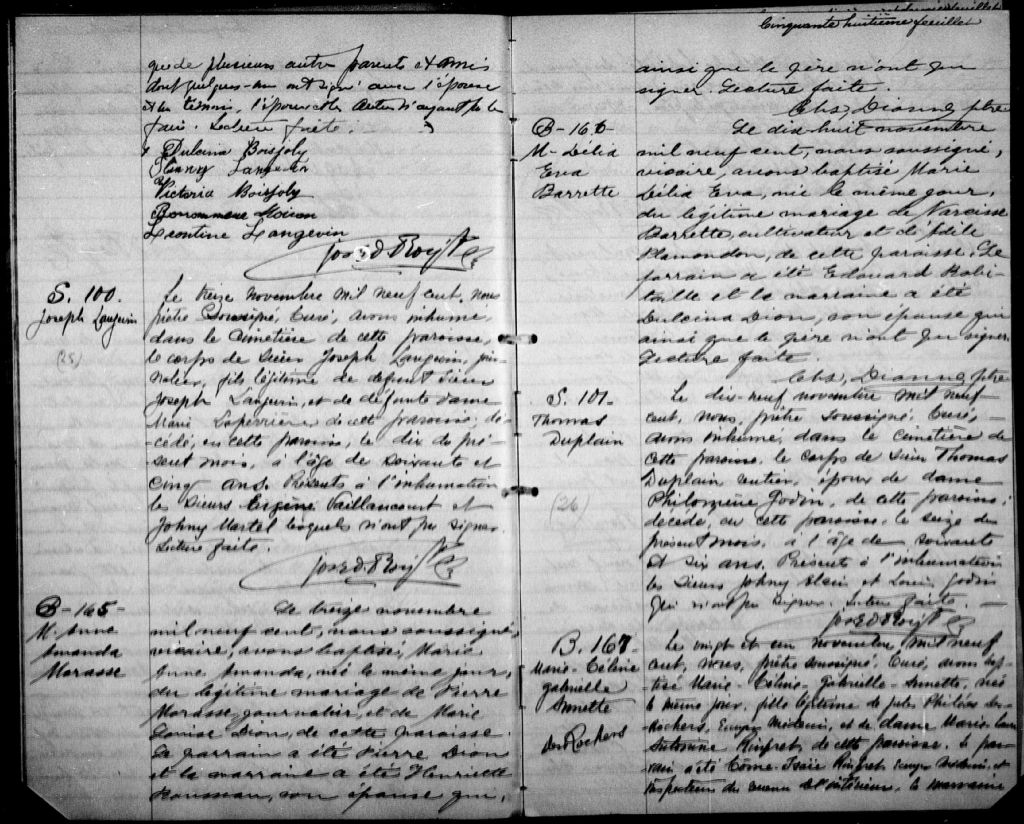 que de plusieurs autres parents et amis
dont quelques-uns ont signé avec l'épouse
et les témoins, l'époux et les autres n'ayant pu le
faire. Lecture faite.
Dulcina Boisjoly
Fanny Langevin
Victoria Boisjoly
Léontine Langevin
Jos. E. D. Roy, Ptre
S. 100.
Joseph Langevin
(25)
Le treize novembre mil neuf cent, nous
prêtre soussigné, curé, avons inhumé,
dans le cimetière de cette paroisse,
le corps de Sieur Joseph Langevin, jour-
nalier, fils légitime de défunt Sieur
Joseph Langevin, et de défunte dame
Marie Laperrière de cette paroisse, dé-
cédé, en cette paroisse, le dix du pré-
sent mois, à l'âge de soixante et
cinq ans. Présents à l'inhumation
les Sieurs Eugène Vaillancourt et
Johny Martel lesquels n'ont pu signer.
Lecture faite.
Jos. E. D. Roy, Ptre
B-165-
M. Anne
Amanda
Morasse
Le treize novembre
mil neuf cent, nous soussigné,
vicaire, avons baptisé, Marie
Anne Amanda, née le même jour,
du légitime mariage de Pierre
Morasse, journalier, et de Marie
Louise Dion, de cette paroisse.
Le parrain a été Pierre Dion
et la marraine a été Henriette
Rousseau, son épouse qui,
Cinquante huitième feuillet
ainsi que le père n'ont pu
signer. Lecture faite.
Chs, Dionne, ptre
B-166-
M-Célia
Eva
Barrette
Le dix-huit novembre
mil neuf cent, nous soussigné,
vicaire, avons baptisé Marie
Célia Eva, née le même jour,
du légitime mariage de Narcisse
Barrette, cultivateur et de
Plamondon, de cette paroisse. Le
parrain a été Edouard Robi-
taille et la marraine a été
Dulcina Dion, son épouse qui
ainsi que le père n'ont pu signer.
Lecture faite.
Chs, Dionne, ptre
S. 101-
Thomas
Duplain
(26)
Le dix-neuf novembre mil neuf
cent, nous, prêtre soussigné, curé,
avons inhumé, dans le cimetière de
cette paroisse, le corps de Sieur Thomas
Duplain rentier, époux de dame
Philomène Godin, de cette paroisse,
décédé, en cette paroisse, le seize du
présent mois, à l'âge de soixante
et six ans. Présents à l'inhumation
les Sieurs Johny Alain et Louis Godin
qui n'ont pu signer. Lecture faite.
Jos. E. D. Roy, Ptre
B. 167-
Marie-Céline
Gabrielle
Annette
Des Rochers
Le vingt et un novembre, mil neuf
cent, nous, prêtre soussigné, curé, avons bap-
tisé Marie-Céline-Gabrielle-Annette, née
le même jour, fille légitime de Philéas Des-
Rochers, Ecuyer Médecin, et de dame Marie
Rinfret de cette paroisse. Le par-
rain a été Côme-Isaïe Rinfret Ecuyer Médecin, et
inspecteur du revenu de l'intérieur, la marraine